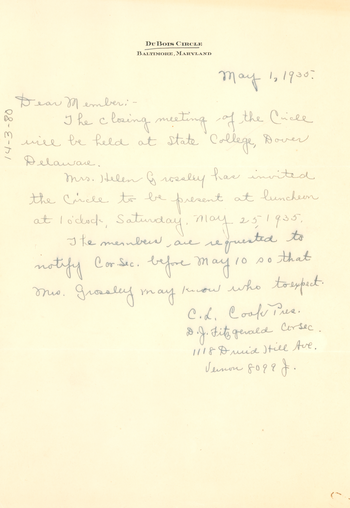 DuBois Circle
Baltimore, Maryland
May 1, 1935.
Dear Member:-
The closing meeting of the Circle
will be held at State College, Dover
Delaware.
Mrs. Helen Grossley has invited
the Circle to be present at luncheon
at 1 o'clock, Saturday, May 25 1935.
The members, are requested to
notify Cor Sec. before May 10 so that
Mrs. Grossley may know who to expect.
C. L. Cook Pres.
D. J. Fitzgerald Cor Sec.
1118 Druid Hill Ave.
Vernon 8099 J.
14-3-80